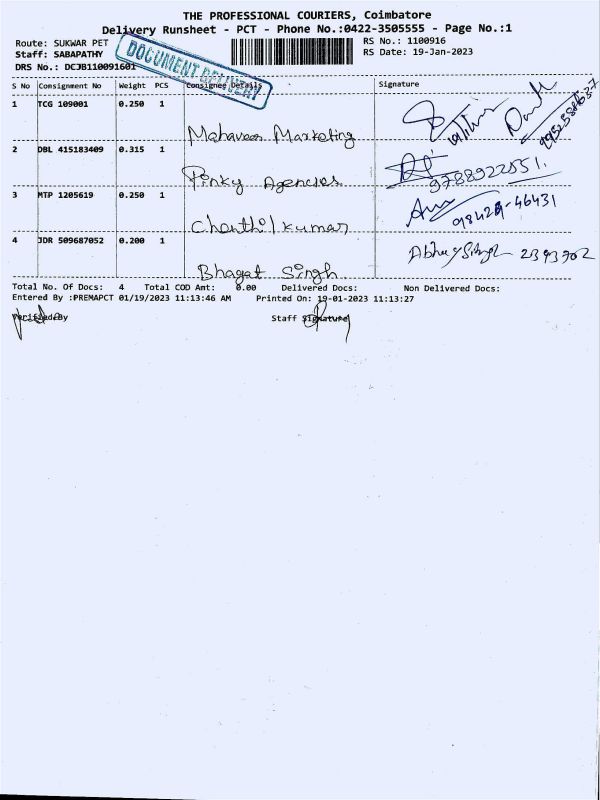 THE PROFESSIONAL COURIERS, Coimbatore
Delivery Runsheet - PCT - Phone No.:0422-3505555 - Page No.:1
Route: SUKWAR PET
RS No.: 1100916
Staff: SABAPATHY
RS Date: 19-Jan-2023
DRS No.: DCJB110091601
DOCUMENT DELIVERY
S No Consignment No Weight PCS Consignee Details Signature
1 TCG 109001 0.250 1
Mahaveer Marketing
2 DBL 415183409 0.315 1
Pinky Agencies
9788922551.
3 MTP 1205619 0.250 1
Chenthil kumar
98429-46431
4 JDR 509687052 0.200 1
Bhagat Singh
Total No. Of Docs: 4 Total COD Amt: 0.00 Delivered Docs: Non Delivered Docs:
Entered By :PREMAPCT 01/19/2023 11:13:46 AM Printed On: 19-01-2023 11:13:27
Verified By Staff Signature